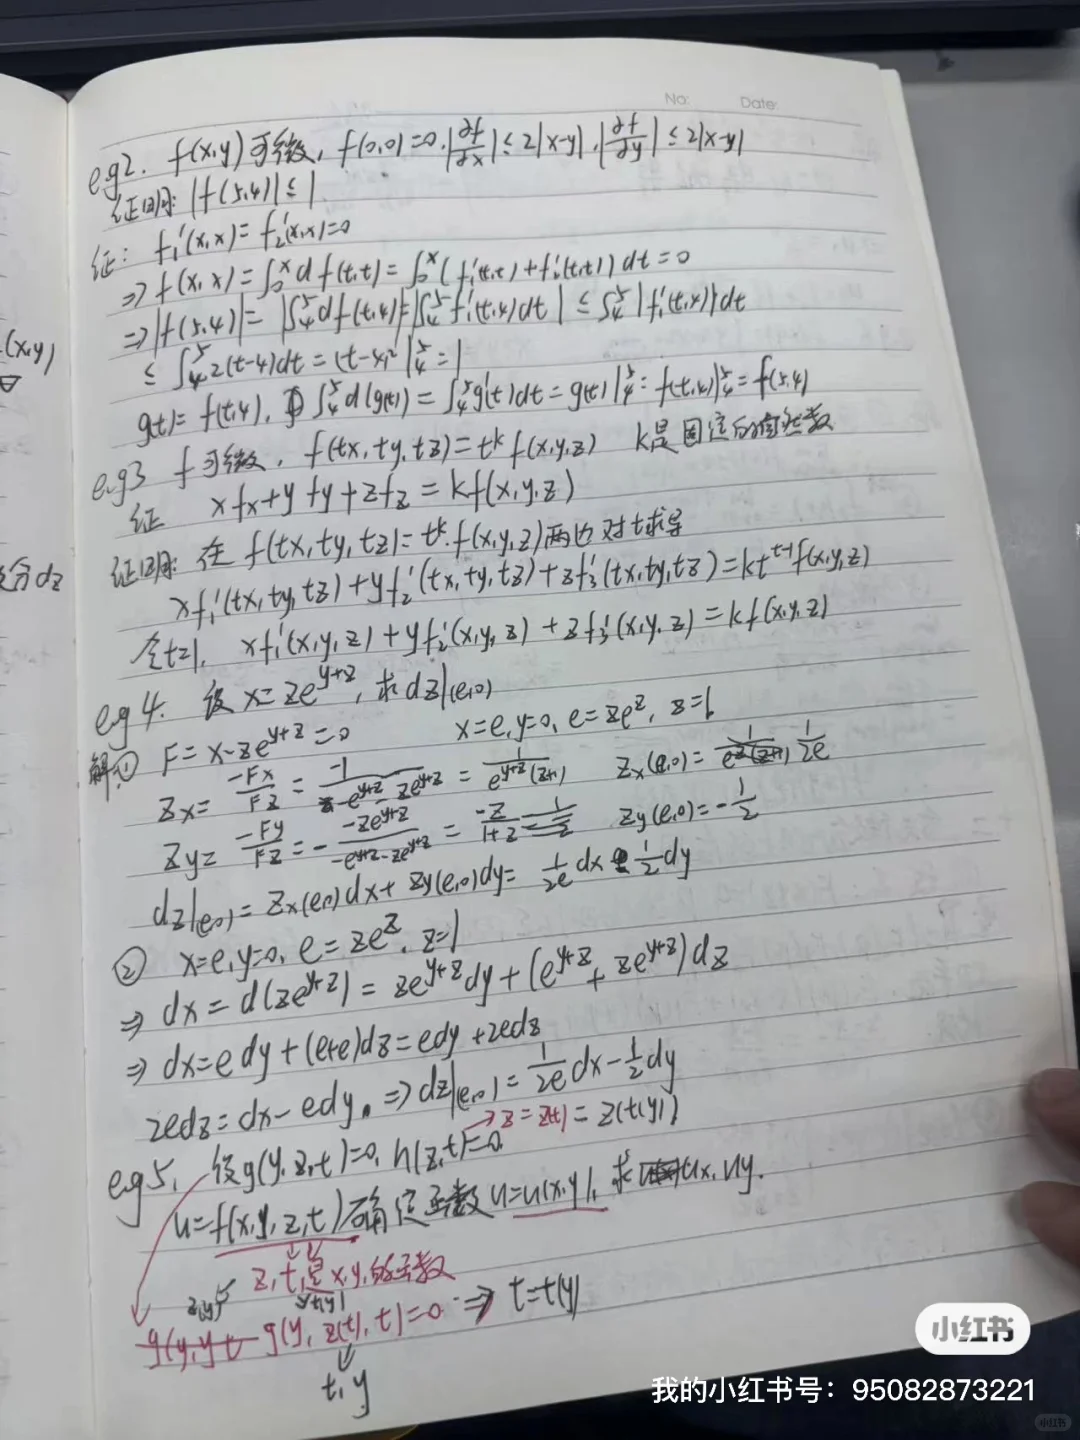 No: Date:
eg2. f(x,y)可微, f(0,0)=0. |∂f/∂x| ≤ 2|x-y|, |∂f/∂y| ≤ 2|x-y|
证明: |f(5,4)| ≤ 1
证: f₁'(x,x) = f₂'(x,x)=0
⇒ f(x,x) = ∫₀ˣ d f(t,t) = ∫₀ˣ (f₁'(t,t) + f₂'(t,t)) dt = 0
⇒ |f(5,4)| = |∫₄⁵ d f(t,4)| = |∫₄⁵ f₁'(t,4) dt | ≤ ∫₄⁵ |f₁'(t,4)| dt
≤ ∫₄⁵ 2(t-4)dt = (t-4)² |₄⁵ = 1
g(t) = f(t,4), ∫₄⁵ d(g(t)) = ∫₄⁵ g'(t)dt = g(t) |₄⁵ = f(t,4)|₄⁵ = f(5,4)
eg3 f可微, f(tx, ty, tz) = tᵏ f(x,y,z) k是固定的自然数
证 xfx + yfy + zfz = kf(x,y,z)
证明: 在 f(tx, ty, tz) = tᵏ·f(x,y,z)两边对t求导
xf₁'(tx, ty, tz) + yf₂'(tx, ty, tz) + zf₃'(tx, ty, tz) = ktᵗ⁻¹f(x,y,z)
令t=1, xf₁'(x,y,z) + yf₂'(x,y,z) + zf₃'(x,y,z) = kf(x,y,z)
eg4. 设x = ze^(y+z), 求dz|(e,0)
解① F = x-ze^(y+z) = 0 x=e, y=0, e=ze^z, z=1
Zx = -Fx/Fz = -1/(-e^(y+z) - ze^(y+z)) = 1/(e^(y+z)(z+1)) Zx(e,0) = 1/2e
Zy = -Fy/Fz = - -ze^(y+z)/(-e^(y+z)-ze^(y+z)) = -z/(1+z) Zy(e,0) = -1/2
dz|(e,0) = Zx(e,0)dx + Zy(e,0)dy = 1/2e dx - 1/2 dy
② x=e, y=0, e=ze^z, z=1
⇒ dx = d(ze^(y+z)) = ze^(y+z)dy + (e^(y+z) + ze^(y+z))dz
⇒ dx = edy + (e+e)dz = edy + 2edz
2edz = dx - edy. ⇒ dz|(e,0) = 1/2e dx - 1/2 dy
→ z = z(t) = z(t(y))
eg5. 设g(y,z,t)=0, h(z,t)=0,
u = f(x,y,z,t)确定函数u=u(x,y), 求ux, uy.
z, t, 是x,y,的函数
g(y, z(t), t) = 0 ⇒ t=t(y)
t, y
(x,y)
分dz
小红书
我的小红书号：95082873221
小红书